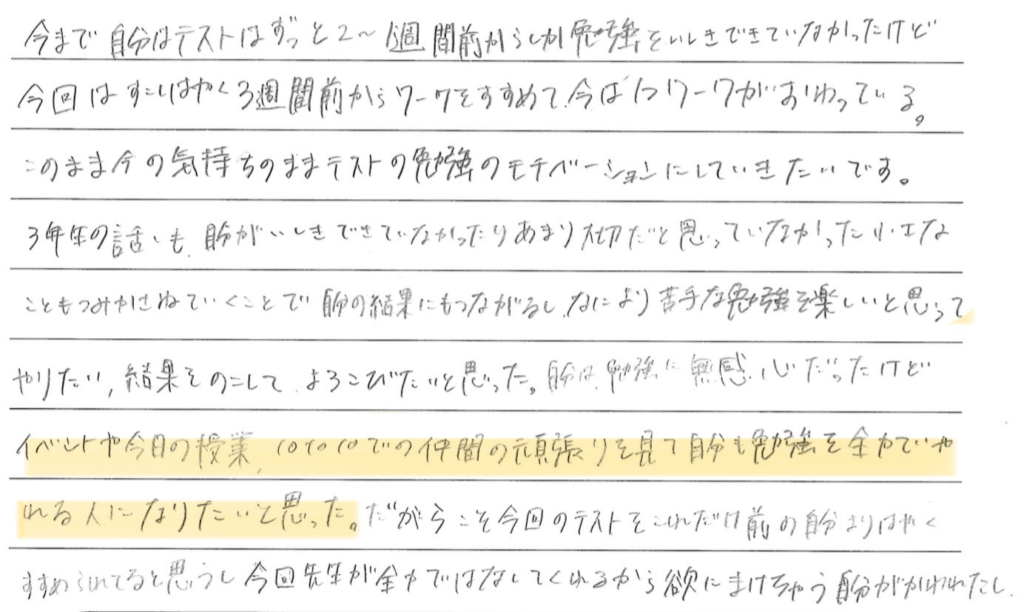 今まで自分はテストはずっと2〜1週間前からしか勉強をいしきできていなかったけど
今回はすこしはやく3週間前からワークをすすめて、今は1つワークがおわっている。
このまま今の気持ちのままテストの勉強のモチベーションにしていきたいです。
3年生の話も、自分がいしきできていなかったりあまり大切だと思っていなかった小さな
こともつみかさねていくことで自分の結果にもつながるし、なにより苦手な勉強を楽しいと思って
やりたい、結果をのこして、よろこびたいと思った。自分は、勉強に無感心だったけど
イベントや今日の授業、10to10での仲間の頑張りを見て自分も勉強を全力でや
れる人になりたいと思った。だからこそ今回のテストをこれだけ前の自分よりはやく
すすめられてると思うし今回先生が全力ではなしてくれるから欲にまけちゃう自分がかわれたし、